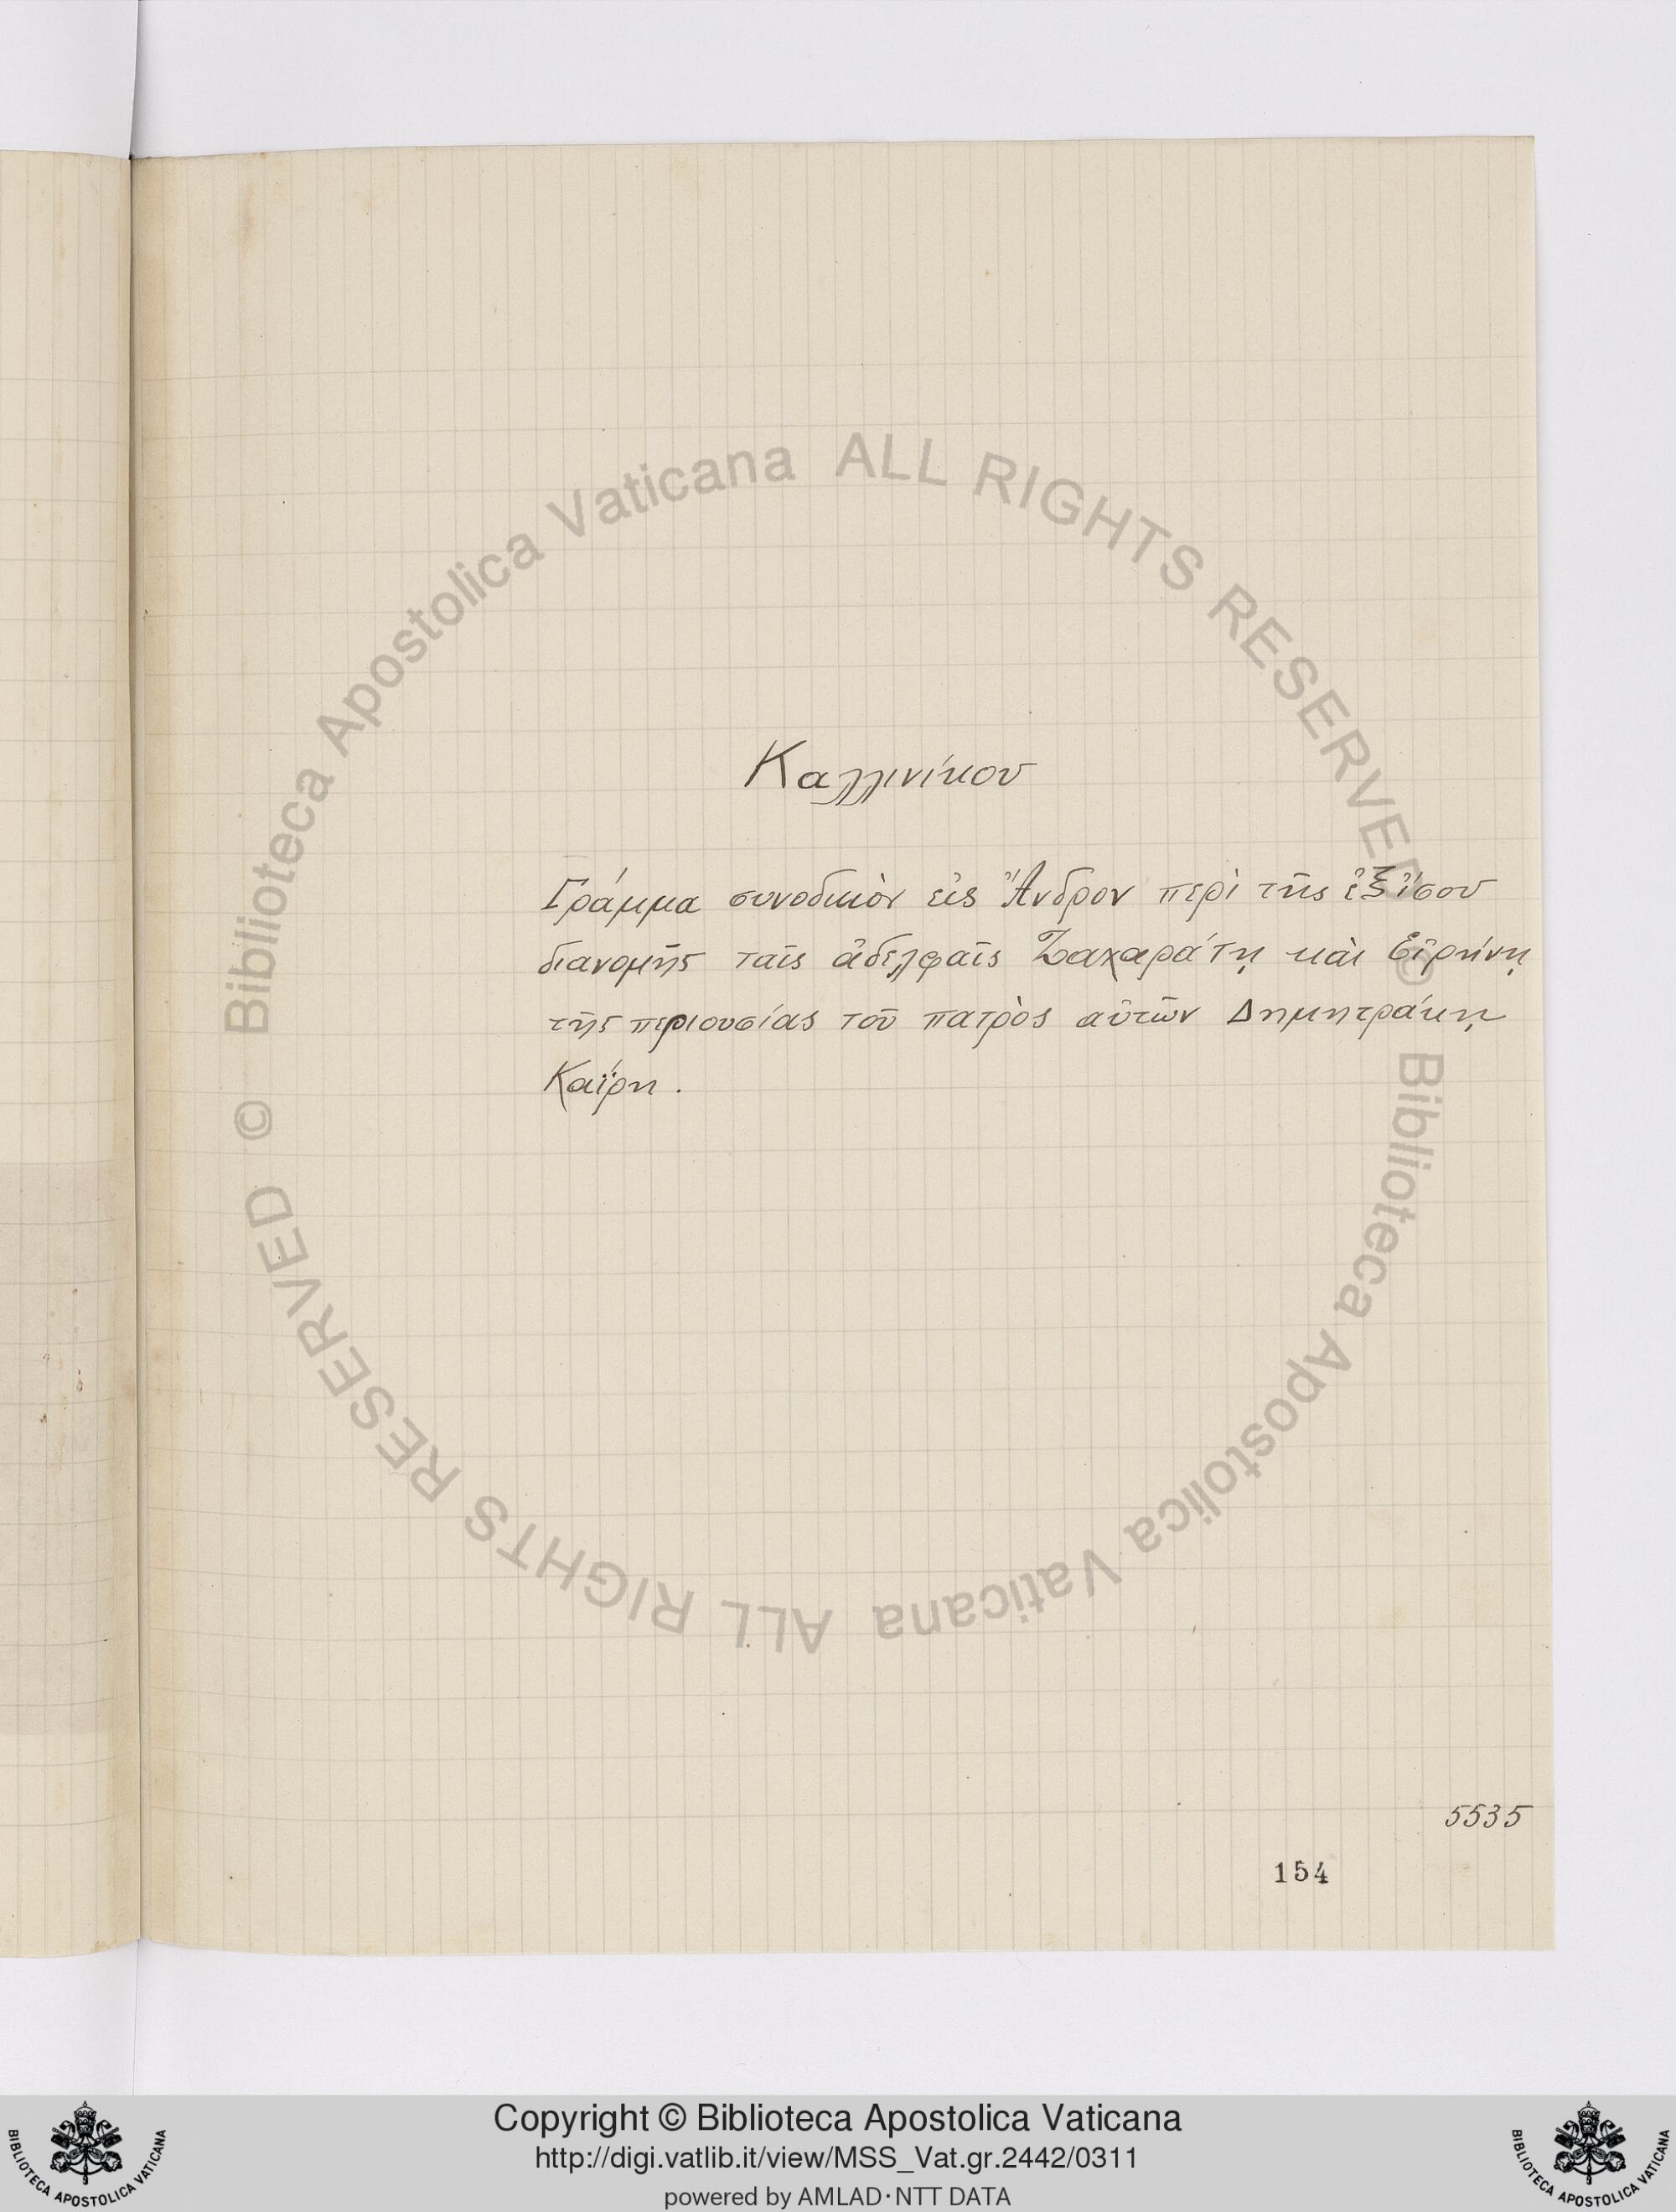 Καλλινίκου
Γράμμα συνοδικὸν εἰς Ἄνδρον περὶ τῆς ἐξ ἴσου
διανομῆς ταῖς ἀδελφαῖς Ζαχαράτῃ καὶ Εἰρήνῃ
τῆς περιουσίας τοῦ πατρὸς αὐτῶν Δημητράκῃ
Καΐρη.
5535
154
© Biblioteca Apostolica Vaticana ALL RIGHTS RESERVED
© Biblioteca Apostolica Vaticana ALL RIGHTS RESERVED
Copyright © Biblioteca Apostolica Vaticana
http://digi.vatlib.it/view/MSS_Vat.gr.2442/0311
powered by AMLAD·NTT DATA
BIBLIOTECA APOSTOLICA VATICANA
BIBLIOTECA APOSTOLICA VATICANA